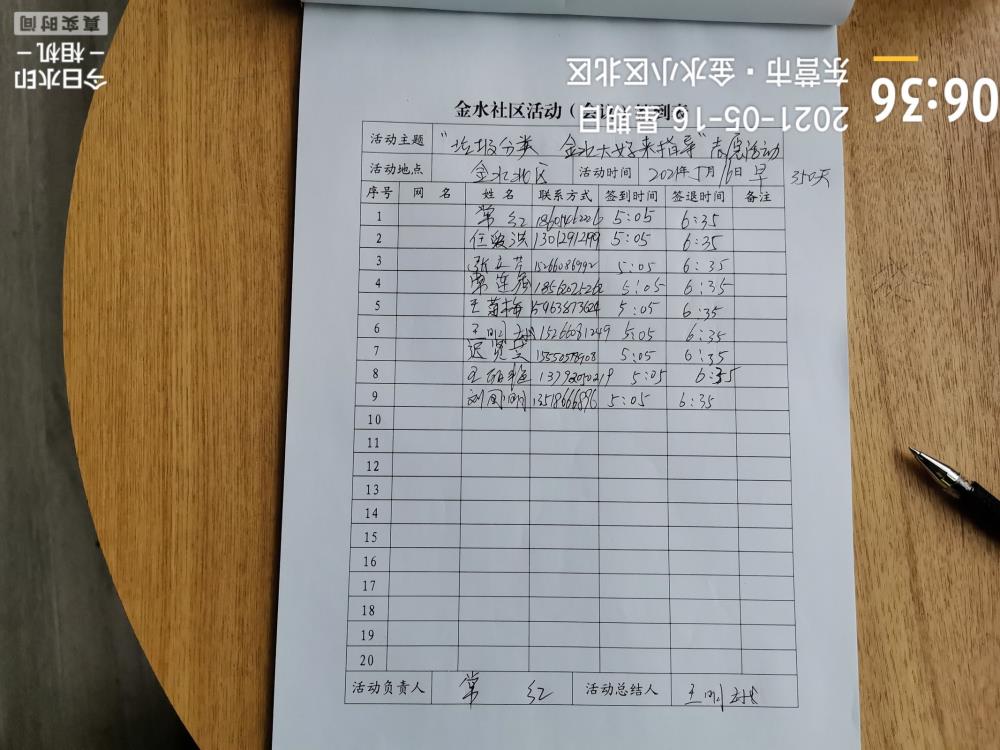 今日水印
相机
真实时间
06:36
2021-05-16 星期日
东营市·金水小区北区
金水社区活动（会议）签到表
活动主题 "垃圾分类 金水大好来指导"志愿活动
活动地点 金水北区 活动时间 2021年5月16日早 350天
序号 网名 姓名 联系方式 签到时间 签退时间 备注
1 常红 5:05 6:35
2 1301291299 5:05 6:35
3 15266086992 5:05 6:35
4 5:05 6:35
5 王菊梅 15963873624 5:05 6:35
6 王明 1526681249 5:05 6:35
7 5:05 6:35
8 5:05 6:35
9 刘国明 13518666896 5:05 6:35
10
11
12
13
14
15
16
17
18
19
20
活动负责人 常红 活动总结人 王明